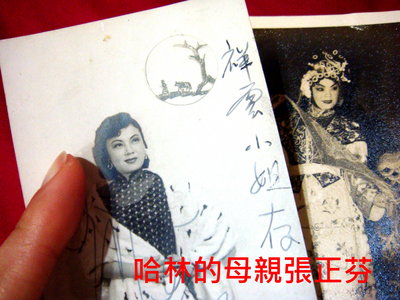 祥雲小姐存
哈林的母親張正芬